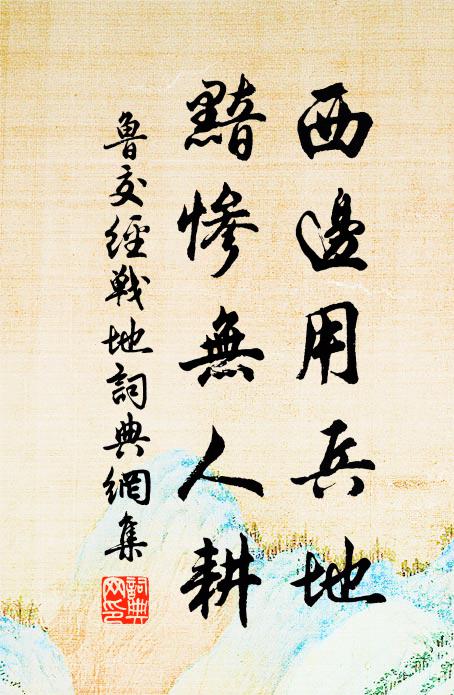 西邊用兵地
黯慘無人耕
魯交經戰地詞典網集
詞典网印